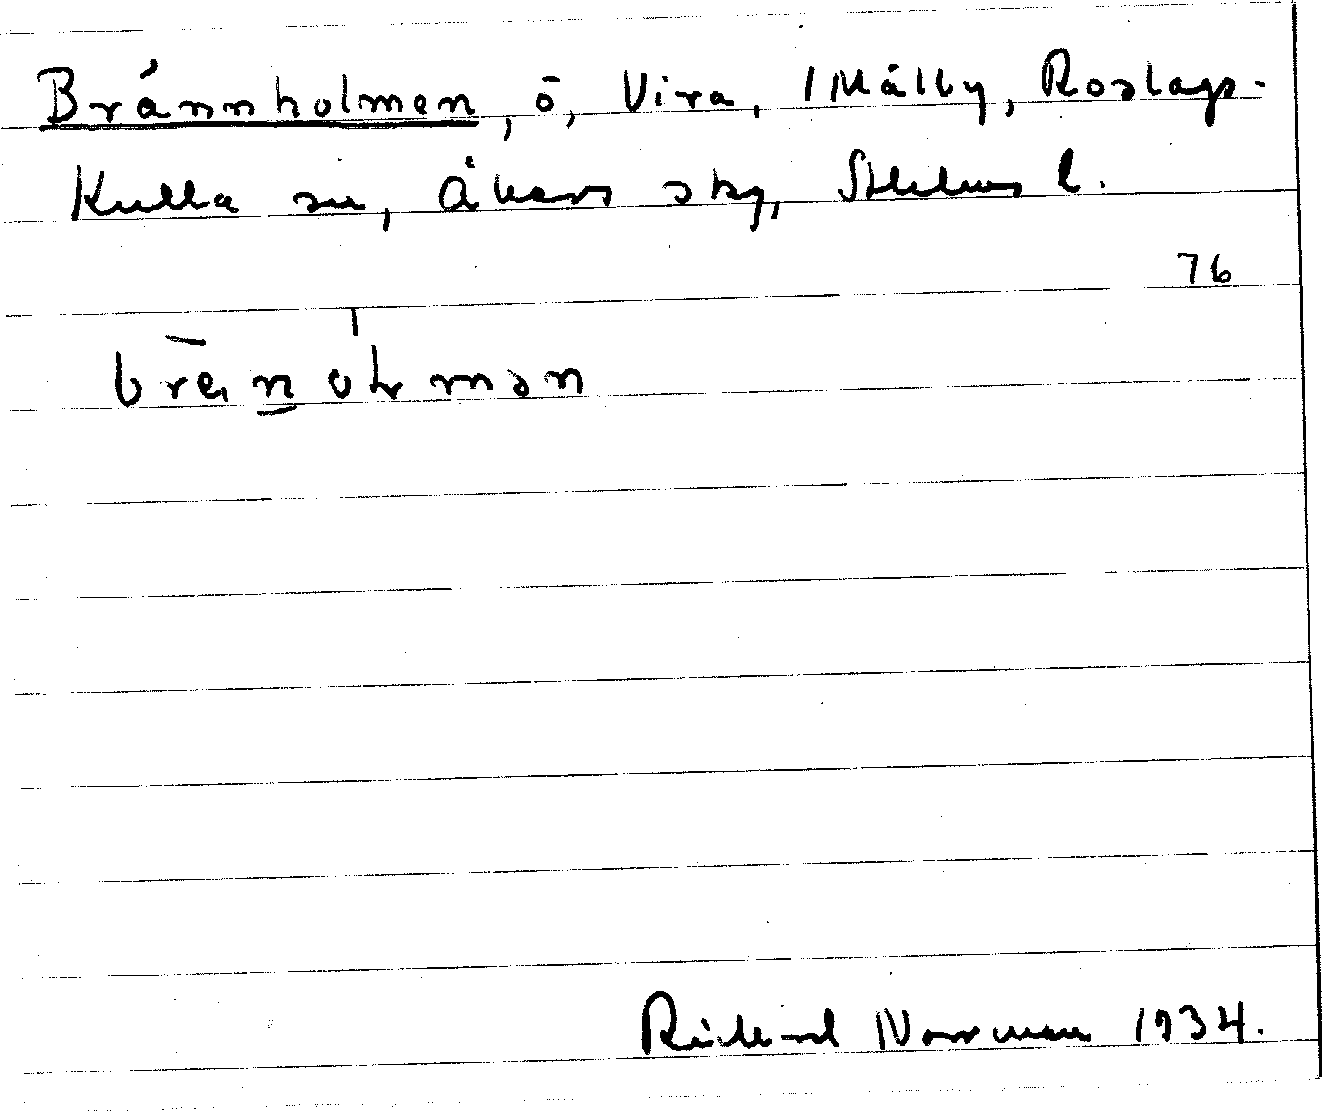 Brännholmen, ö, Vira, 1 Mälby, Roslags-
Kulla sn, Åkers skg, Sthlms l.
76
Rickard Norrman 1934.